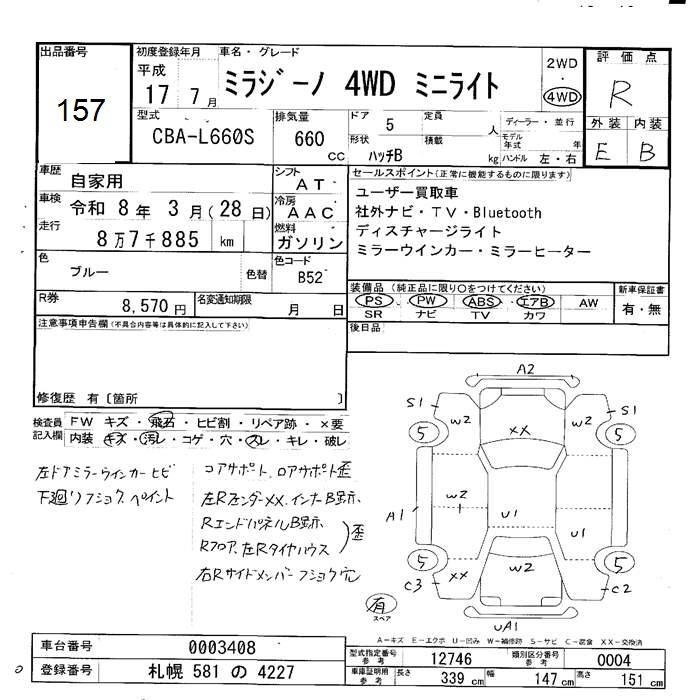 出品番号
157
初度登録年月
平成
17 7月
車名・グレード
ミラジーノ 4WD ミニライト
2WD
・
4WD
評価点
R
型式
CBA-L660S
排気量
660
cc
ドア 5
定員 人
形状 ハッチB
積載 kg
ディーラー・並行
モデル年式 年
ハンドル 左・右
外装 内装
E B
車歴 自家用
シフト AT
車検 令和 8年 3月(28日)
冷房 AAC
走行 8万7千885 km
燃料 ガソリン
色 ブルー
色替
色コード B52
R券 8,570円
名変通知期限 月 日
セールスポイント(正常に機能するものに限ります)
ユーザー買取車
社外ナビ・TV・Bluetooth
ディスチャージライト
ミラーウインカー・ミラーヒーター
装備品(純正品に限り○をつけてください)
新車保証書
PS・PW・ABS・エアB AW
SR ナビ TV カワ
有・無
後日品
注意事項申告欄(不具合内容等は具体的に記入して下さい)
修復歴 有〔箇所 〕
検査員記入欄
FW キズ・飛石・ヒビ割・リペア跡・×要
内装 キズ・汚レ・コゲ・穴・スレ・キレ・破レ
左ドアミラーウインカーヒビ
下廻りフショク、ペイント
コアサポート、ロアサポート歪
左Rフェンダー××、インナーB顕示、
RエンドパネルB顕示
Rフロア、左Rタイヤハウス
歪
右Rサイドメンバーフショク穴
A2
S1 S1
W2 W2
××
5 5
W2
A1
U1
U1
5 5
×× W2
C3 C2
有
スペア
UA1
A-キズ E-エクボ U-凹み W-補修跡 S-サビ C-腐食 XX-交換済
車台番号 0003408
登録番号 札幌 581 の 4227
型式指定番号 参考 12746
類別区分番号 参考 0004
車庫証明用 参考
長さ 339 cm
幅 147 cm
高さ 151 cm